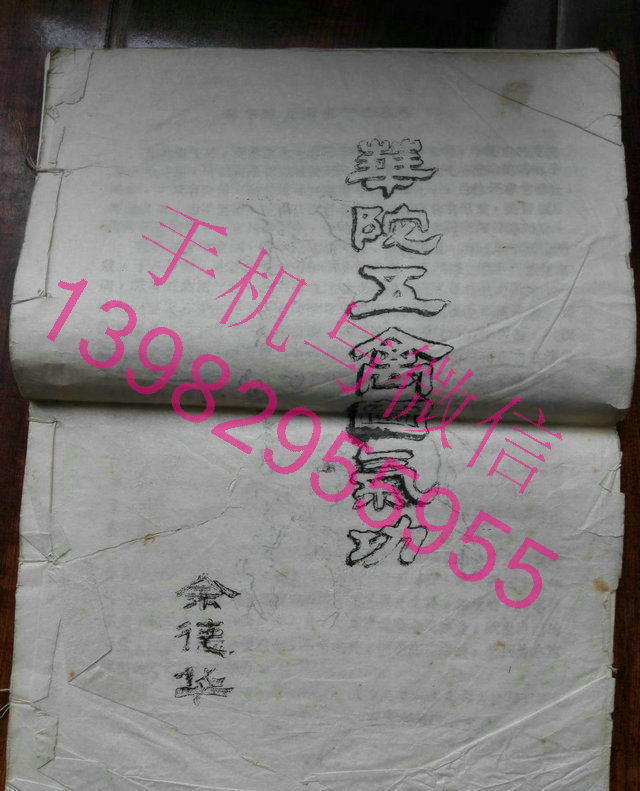 華陀五禽氣功
余德华
手机与微信
13982955955